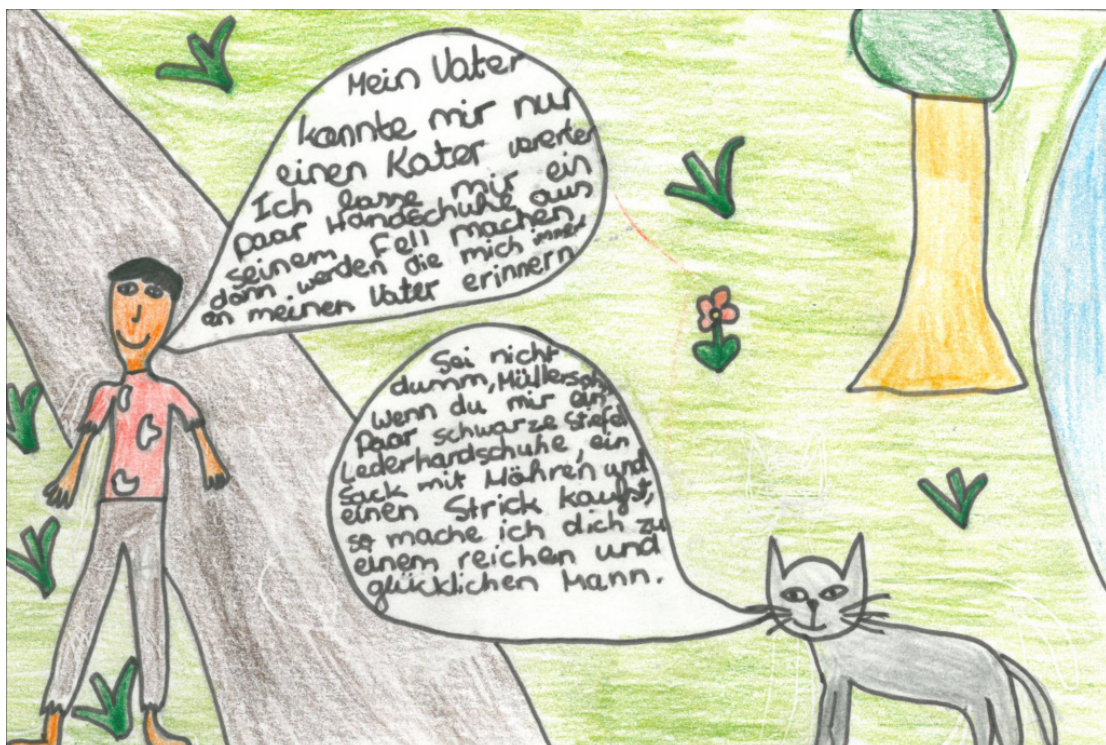 Mein Vater
konnte mir nur
einen Kater vererben
Ich lasse mir ein
paar Handschuhe aus
seinem Fell machen,
dann werden die mich immer
an meinen Vater erinnern.
Sei nicht
dumm, Müllersohn
Wenn du mir ein
Paar schwarze Stiefel
Lederhardschuhe, ein
Sack mit Möhren und
einen Strick kaufst,
so mache ich dich zu
einem reichen und
glücklichen Mann.